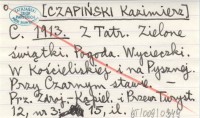 [CZAPIŃSKI Kazimierz]
C. 1913. Z Tatr. Zielone
świątki. Pogoda. Wycieczki.
W Kościeliskiej i na Pysznej.
Przy Czarnym stawie. –
Prz. Zdroj.-Kąpiel. i Przew. Turyst.
12, nr 3: s. 15, il.